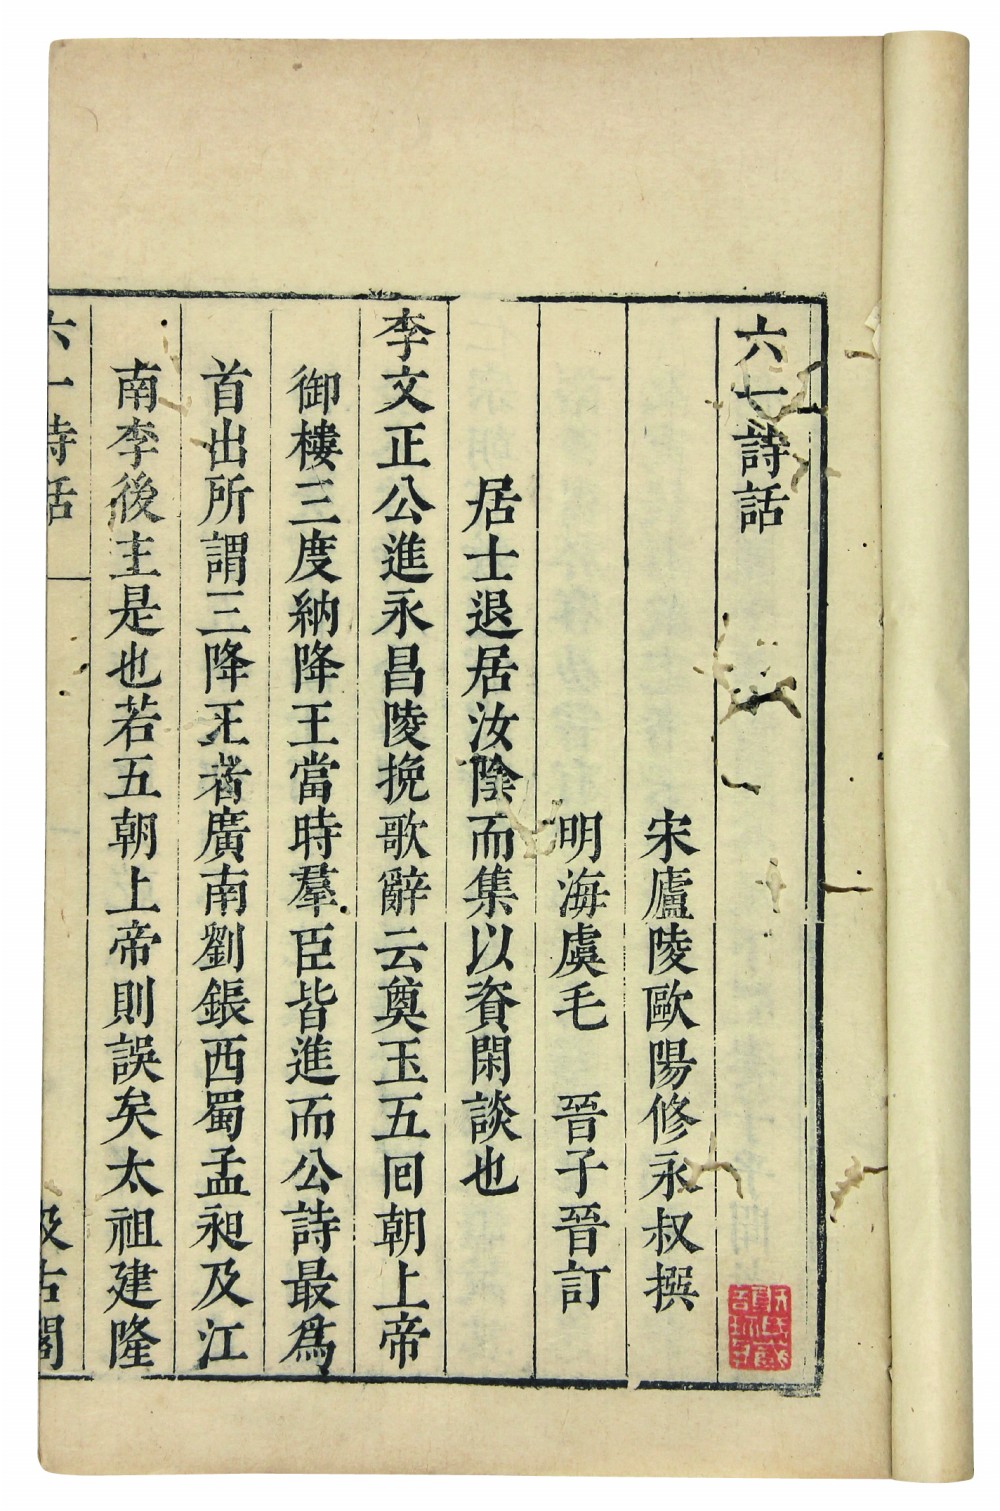 六一詩話
宋廬陵歐陽修永叔撰
明海虞毛　晉子晉訂
居士退居汝陰而集以資閑談也
李文正公進永昌陵挽歌辭云奠玉五回朝上帝
御樓三度納降王當時羣臣皆進而公詩最爲
首出所謂三降王者廣南劉鋹西蜀孟昶及江
南李後主是也若五朝上帝則誤矣太祖建隆
六一詩話
汲古閣